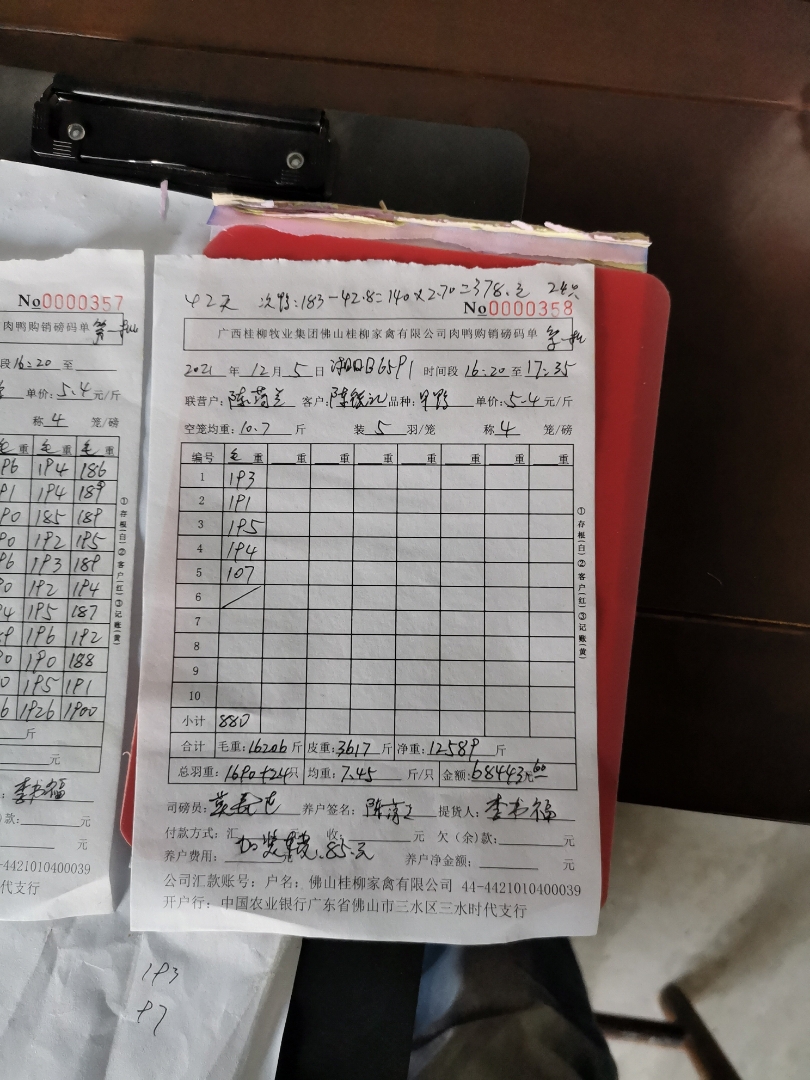 No 0000357
肉鸭购销磅码单
段16:20 至
单价:5.4元/斤
称 4 笼/磅
重 毛重 毛重
196 194 186
191 194 189
190 185 189
190 192 195
196 193 189
190 192 194
194 195 187
189 196 192
190 190 188
190 195 191
6 1926 1900
斤
元
:李书福
款: 元
-4421010400039
代支行
①存根(白)②客户(红)③记账(黄)
42天 次鸭:183-42.8=140×2.70=378.元 24只
No 0000358
广西桂柳牧业集团佛山桂柳家禽有限公司肉鸭购销磅码单
2021 年 12 月 5 日 6591 时间段 16:20至17:35
联营户: 客户: 品种: 单价:5.4元/斤
空笼均重:10.7 斤 装 5 羽/笼 称 4 笼/磅
编号 毛重 重 重 重 重 重 重 重
1 193
2 191
3 195
4 194
5 107
6
7
8
9
10
小计 880
合计 毛重:16206斤 皮重:3617斤 净重:12589 斤
总羽重:1690+24只 均重:7.45 斤/只 金额:68443元60
司磅员: 养户签名: 提货人:李书福
付款方式:汇 收: 元 欠(余)款: 元
养户费用: 85.元 养户净金额: 元
公司汇款账号:户名:佛山桂柳家禽有限公司 44-4421010400039
开户行:中国农业银行广东省佛山市三水区三水时代支行
①存根(白)②客户(红)③记账(黄)
193
97